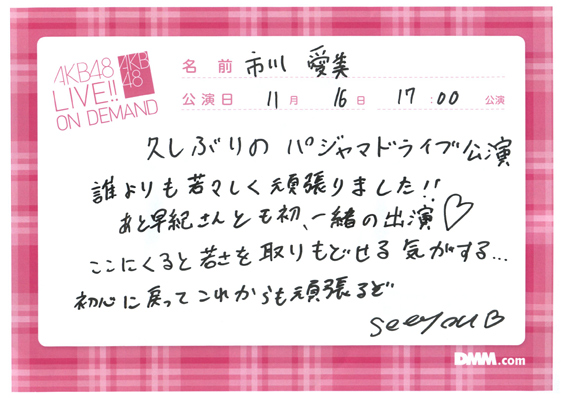 AKB48
LIVE!!
ON DEMAND
AKB
48
名前 市川 愛美
公演日 11月 16日 17:00 公演
久しぶりの パジャマドライブ公演
誰よりも若々しく頑張りました!!
あと早紀さんとも初、一緒の出演♡
ここにくると若さを取りもどせる気がする...
初心に戻ってこれからも頑張るど
see you♡
DMM.com